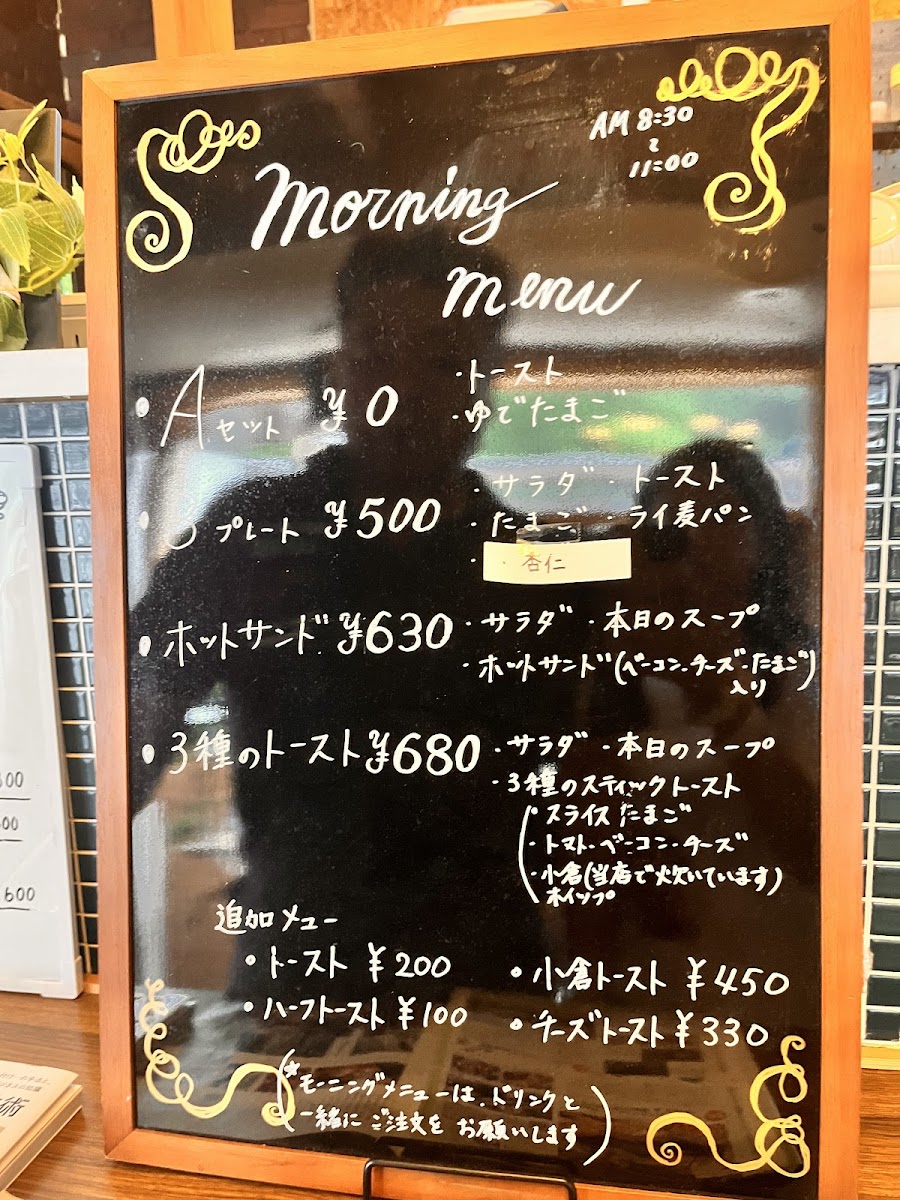 AM 8:30
〜
11:00
Morning
menu
・Aセット ¥0 ・トースト
・ゆでたまご
プレート ¥500 ・サラダ ・トースト
・たまご ・ライ麦パン
・杏仁
・ホットサンド ¥630 ・サラダ ・本日のスープ
・ホットサンド(ベーコン・チーズ・たまご)
入り
・3種のトースト ¥680 ・サラダ ・本日のスープ
・3種のスティックトースト
・スライスたまご
・トマト・ベーコン・チーズ
・小倉(当店で炊いています)
ホイップ
追加メュー
・トースト ¥200 ・小倉トースト ¥450
・ハーフトースト ¥100 ・チーズトースト ¥330
(*モーニングメニューは、ドリンクと
一緒に ご注文を お願いします)
600
術